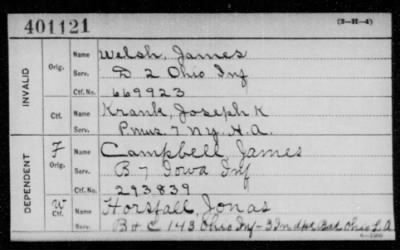 401121
(3-H-4)
INVALID
Orig.
Name Welsh, James
Serv. D 2 Ohio Inf
Ctf. No. 669923
Ctf.
Name Krank, Joseph K
Serv. P.mus. 7 N.Y. H.A.
DEPENDENT
F
Orig.
Name Campbell James
Serv. B 7 Iowa Inf
Ctf. No. 293839
W
Ctf.
Name Horsfall, Jonas
Serv. B & C 143 Ohio Inf - 3 Indpt Bat Ohio L.A